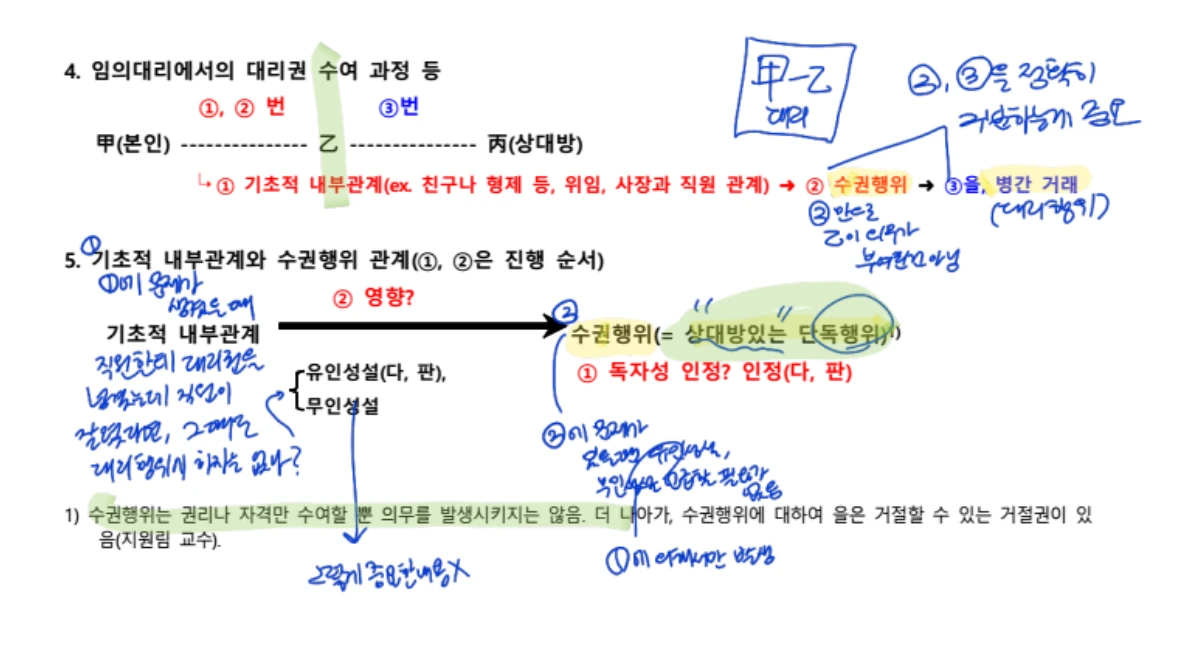 4. 임의대리에서의 대리권 수여 과정 등
甲-乙
대리
②, ③을 정확히
구분하는게 중요
①, ② 번 ③번
甲(본인) --------------- 乙 --------------- 丙(상대방)
↳ ① 기초적 내부관계(ex. 친구나 형제 등, 위임, 사장과 직원 관계) → ② 수권행위 → ③을, 병간 거래
(대리행위)
②만으로
乙이 의무가
부여된건 아님
5. 기초적 내부관계와 수권행위 관계(①, ②은 진행 순서)
①
①에 문제가
생겼을 때
② 영향?
기초적 내부관계
②
수권행위(= "상대방있는" 단독행위)1)
① 독자성 인정? 인정(다, 판)
유인성설(다, 판),
무인성설
직원한테 대리권을
남겼는데 직원이
잘렸다면, 그때는
대리행위시 하자는 없나?
②에 문제가
있을때는 유인성설,
무인성설 언급할 필요가
없음
1) 수권행위는 권리나 자격만 수여할 뿐 의무를 발생시키지는 않음. 더 나아가, 수권행위에 대하여 을은 거절할 수 있는 거절권이 있
음(지원림 교수).
그렇게 중요한 내용X
①에 의해서만 발생